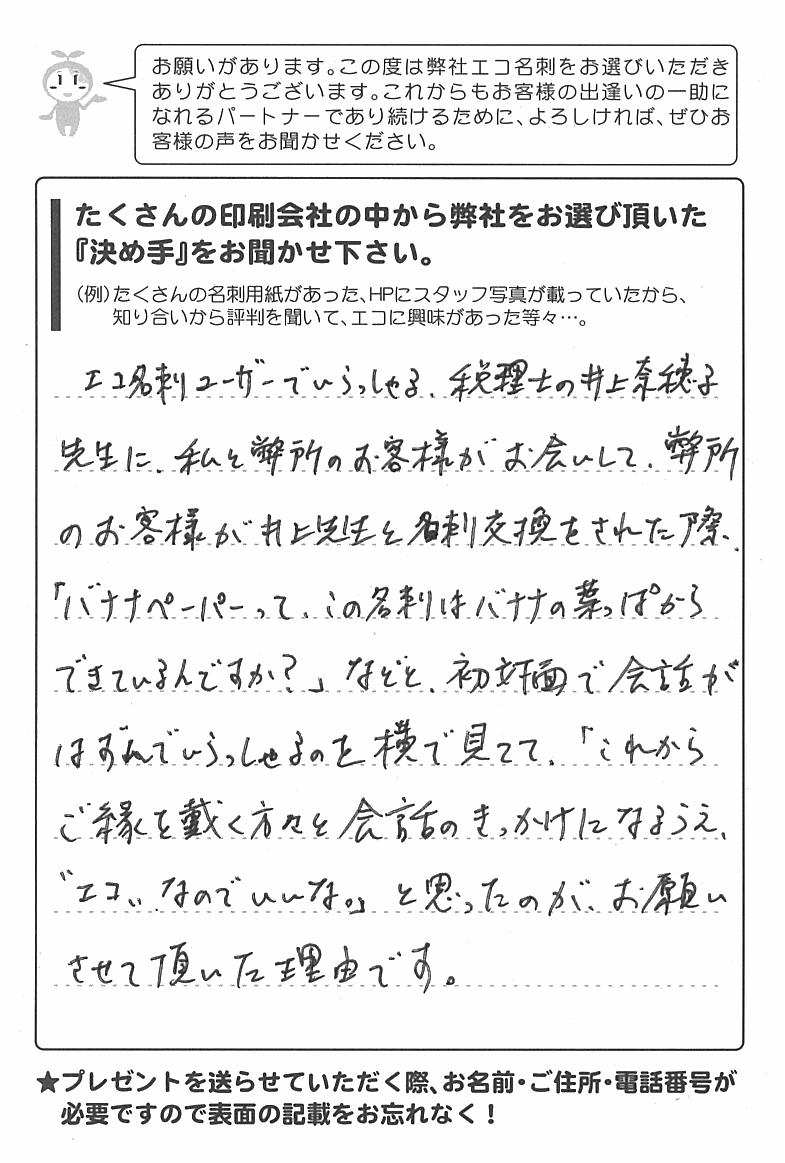 お願いがあります。この度は弊社エコ名刺をお選びいただき
ありがとうございます。これからもお客様の出逢いの一助に
なれるパートナーであり続けるために、よろしければ、ぜひお
客様の声をお聞かせください。
たくさんの印刷会社の中から弊社をお選び頂いた
『決め手』をお聞かせ下さい。
(例)たくさんの名刺用紙があった、HPにスタッフ写真が載っていたから、
知り合いから評判を聞いて、エコに興味があった等々…。
エコ名刺ユーザーでいらっしゃる、税理士の井上奈穂子
先生に、私と弊所のお客様がお会いして、弊所
のお客様が井上先生と名刺交換をされた際、
「バナナペーパーって、この名刺はバナナの葉っぱから
できているんですか?」などと、初対面で会話が
はずんでいらっしゃるのを横で見てて、「これから
ご縁を戴く方々と会話のきっかけになるうえ、
〝エコ〟なのでいいな。」と思ったのが、お願い
させて頂いた理由です。
★プレゼントを送らせていただく際、お名前・ご住所・電話番号が
必要ですので表面の記載をお忘れなく！